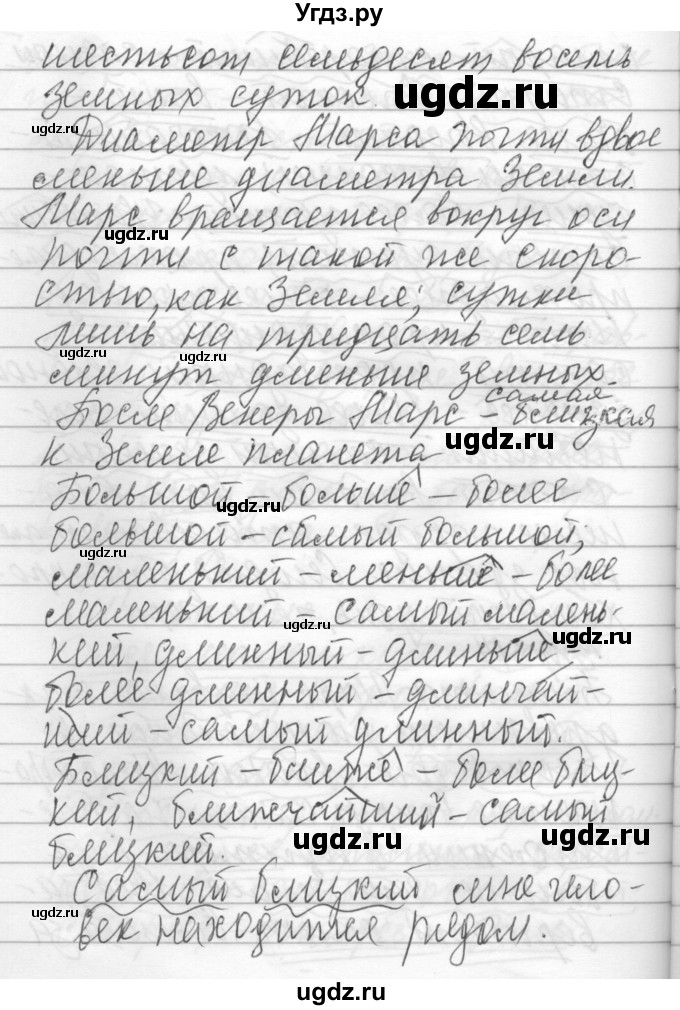 Угдз.ру
шестьсот семьдесят восемь
земных суток.
ugdz.ru
ugdz.ru
Диаметр Марса почти вдвое
меньше диаметра Земли.
Марс вращается вокруг оси
ugdz.ru
ugdz.ru
почти с такой же скоро-
стью, как Земля; сутки
лишь на тридцать семь
ugdz.ru
ugdz.ru
минут дленьше земных.
самая
После Венеры Марс – близкая
к Земле планета
ugdz.ru
Большой – больше – более
ugdz.ru
большой – самый большой;
ugdz.ru
маленький – меньше – более
маленький – самый малень-
ugdz.ru
ugdz.ru
кий, длинный – длиньше –
более длинный – длинчай-
ший – самый длинный.
Близкий – ближе – более близ-
кий, ближчайший – самый
ugdz.ru
ugdz.ru
близкий.
Самый близкий мне чело-
ugdz.ru
век находится рядом.
ugdz.ru